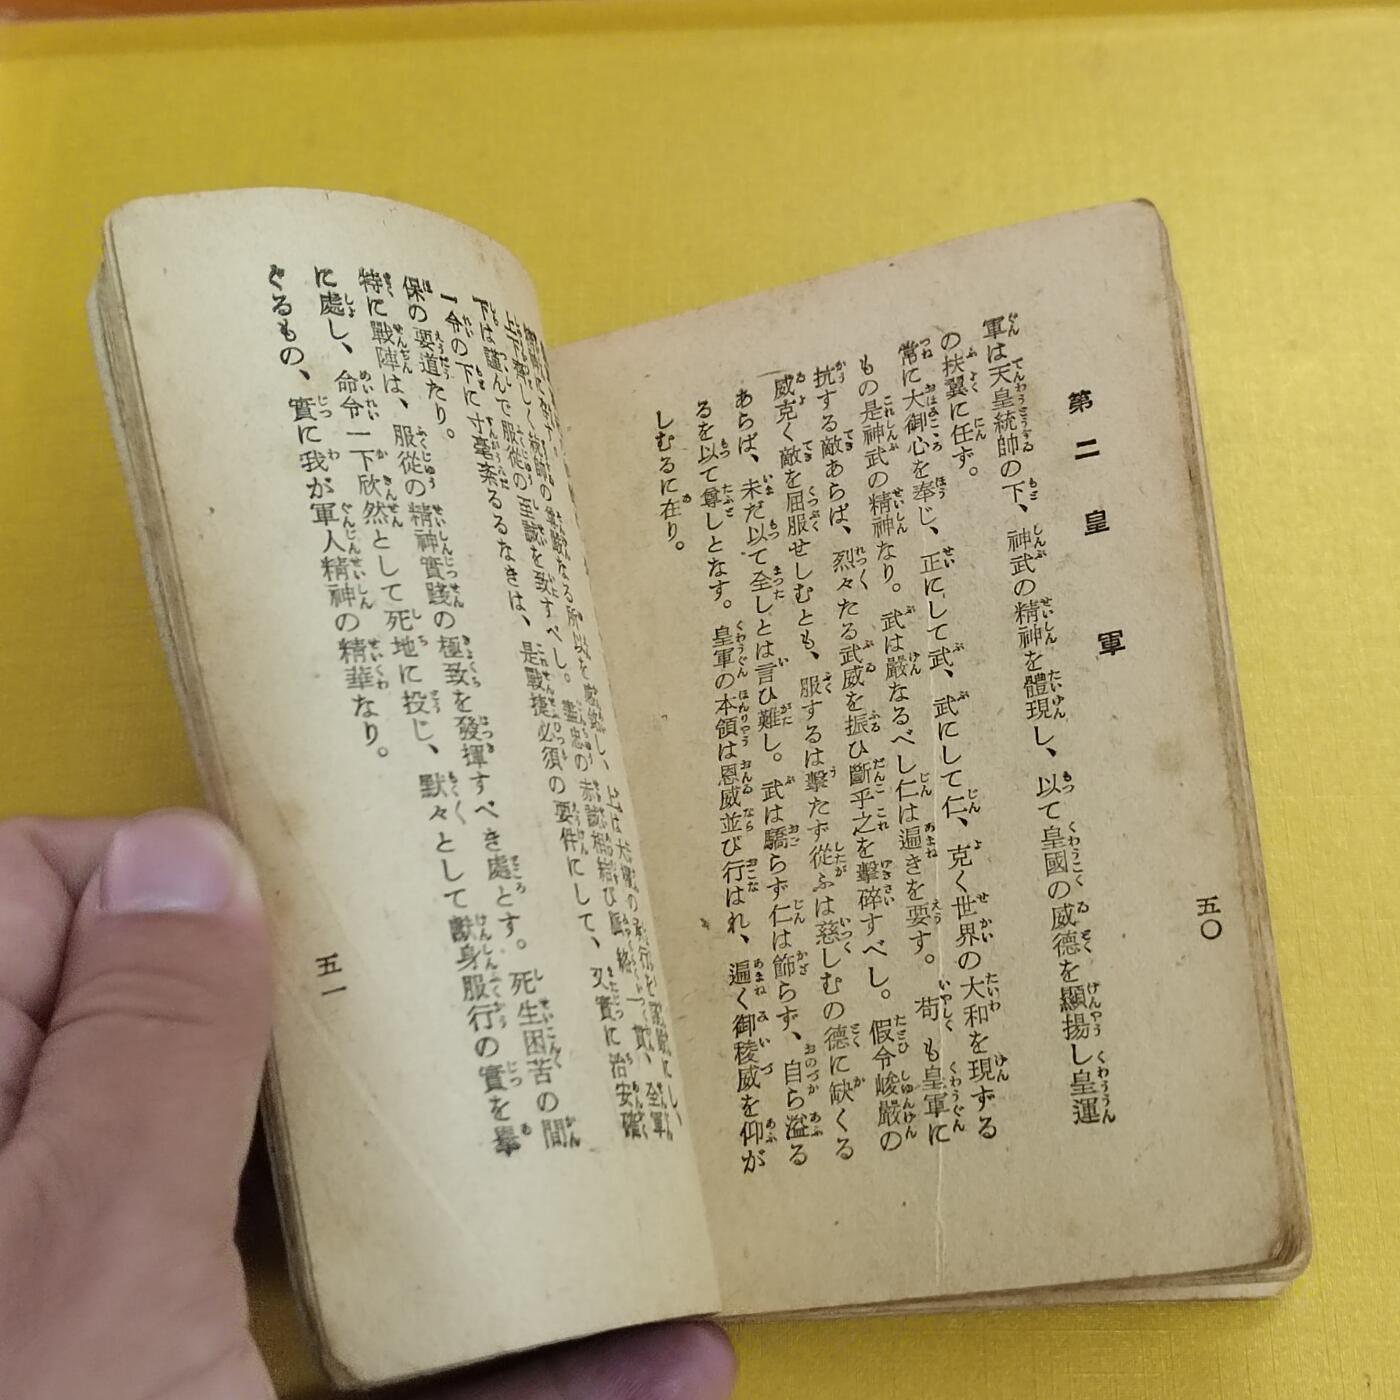 五〇
第二 皇軍
軍は天皇統帥の下、神武の精神を體現し、以て皇國の威德を顯揚し皇運
の扶翼に任ず。
常に大御心を奉じ、正にして武、武にして仁、克く世界の大和を現ずる
もの是神武の精神なり。武は嚴なるべし仁は遍きを要す。苟も皇軍に
抗する敵あらば、烈々たる武威を振ひ斷乎之を擊碎すべし。假令峻嚴の
威克く敵を屈服せしむとも、服するは擊たず從ふは慈しむの德に缺くる
あらば、未だ以て全しとは言ひ難し。武は驕らず仁は飾らず、自ら溢る
るを以て尊しとなす。皇軍の本領は恩威並び行はれ、遍く御稜威を仰が
しむるに在り。
上下
下は謹んで服從の至誠を致すべし。盡忠の赤誠相結び
一令の下に寸毫紊るるなきは、是戰捷必須の要件にして、又實に治安確
保の要道たり。
特に戰陣は、服從の精神實踐の極致を發揮すべき處とす。死生困苦の間
に處し、命令一下欣然として死地に投じ、默々として獻身服行の實を擧
ぐるもの、實に我が軍人精神の精華なり。
五一